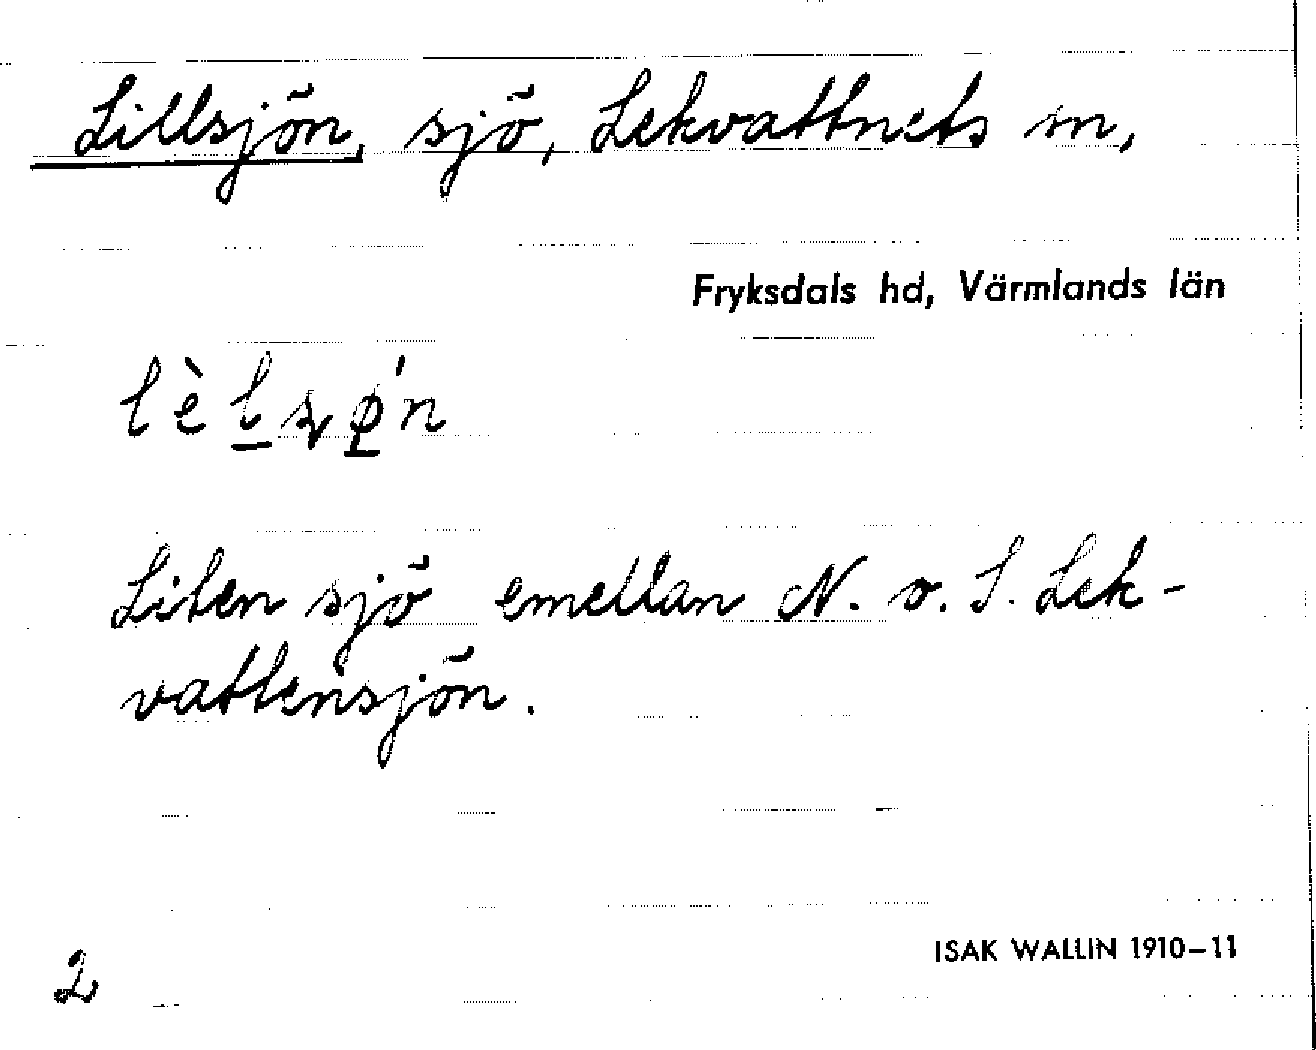 Lillsjön, sjö, Lekvattnets sn,
Fryksdals hd, Värmlands län
lèl̲ʂǿ̲n
Liten sjö emellan N. o. S. Lek-
vattensjön.
2
ISAK WALLIN 1910–11